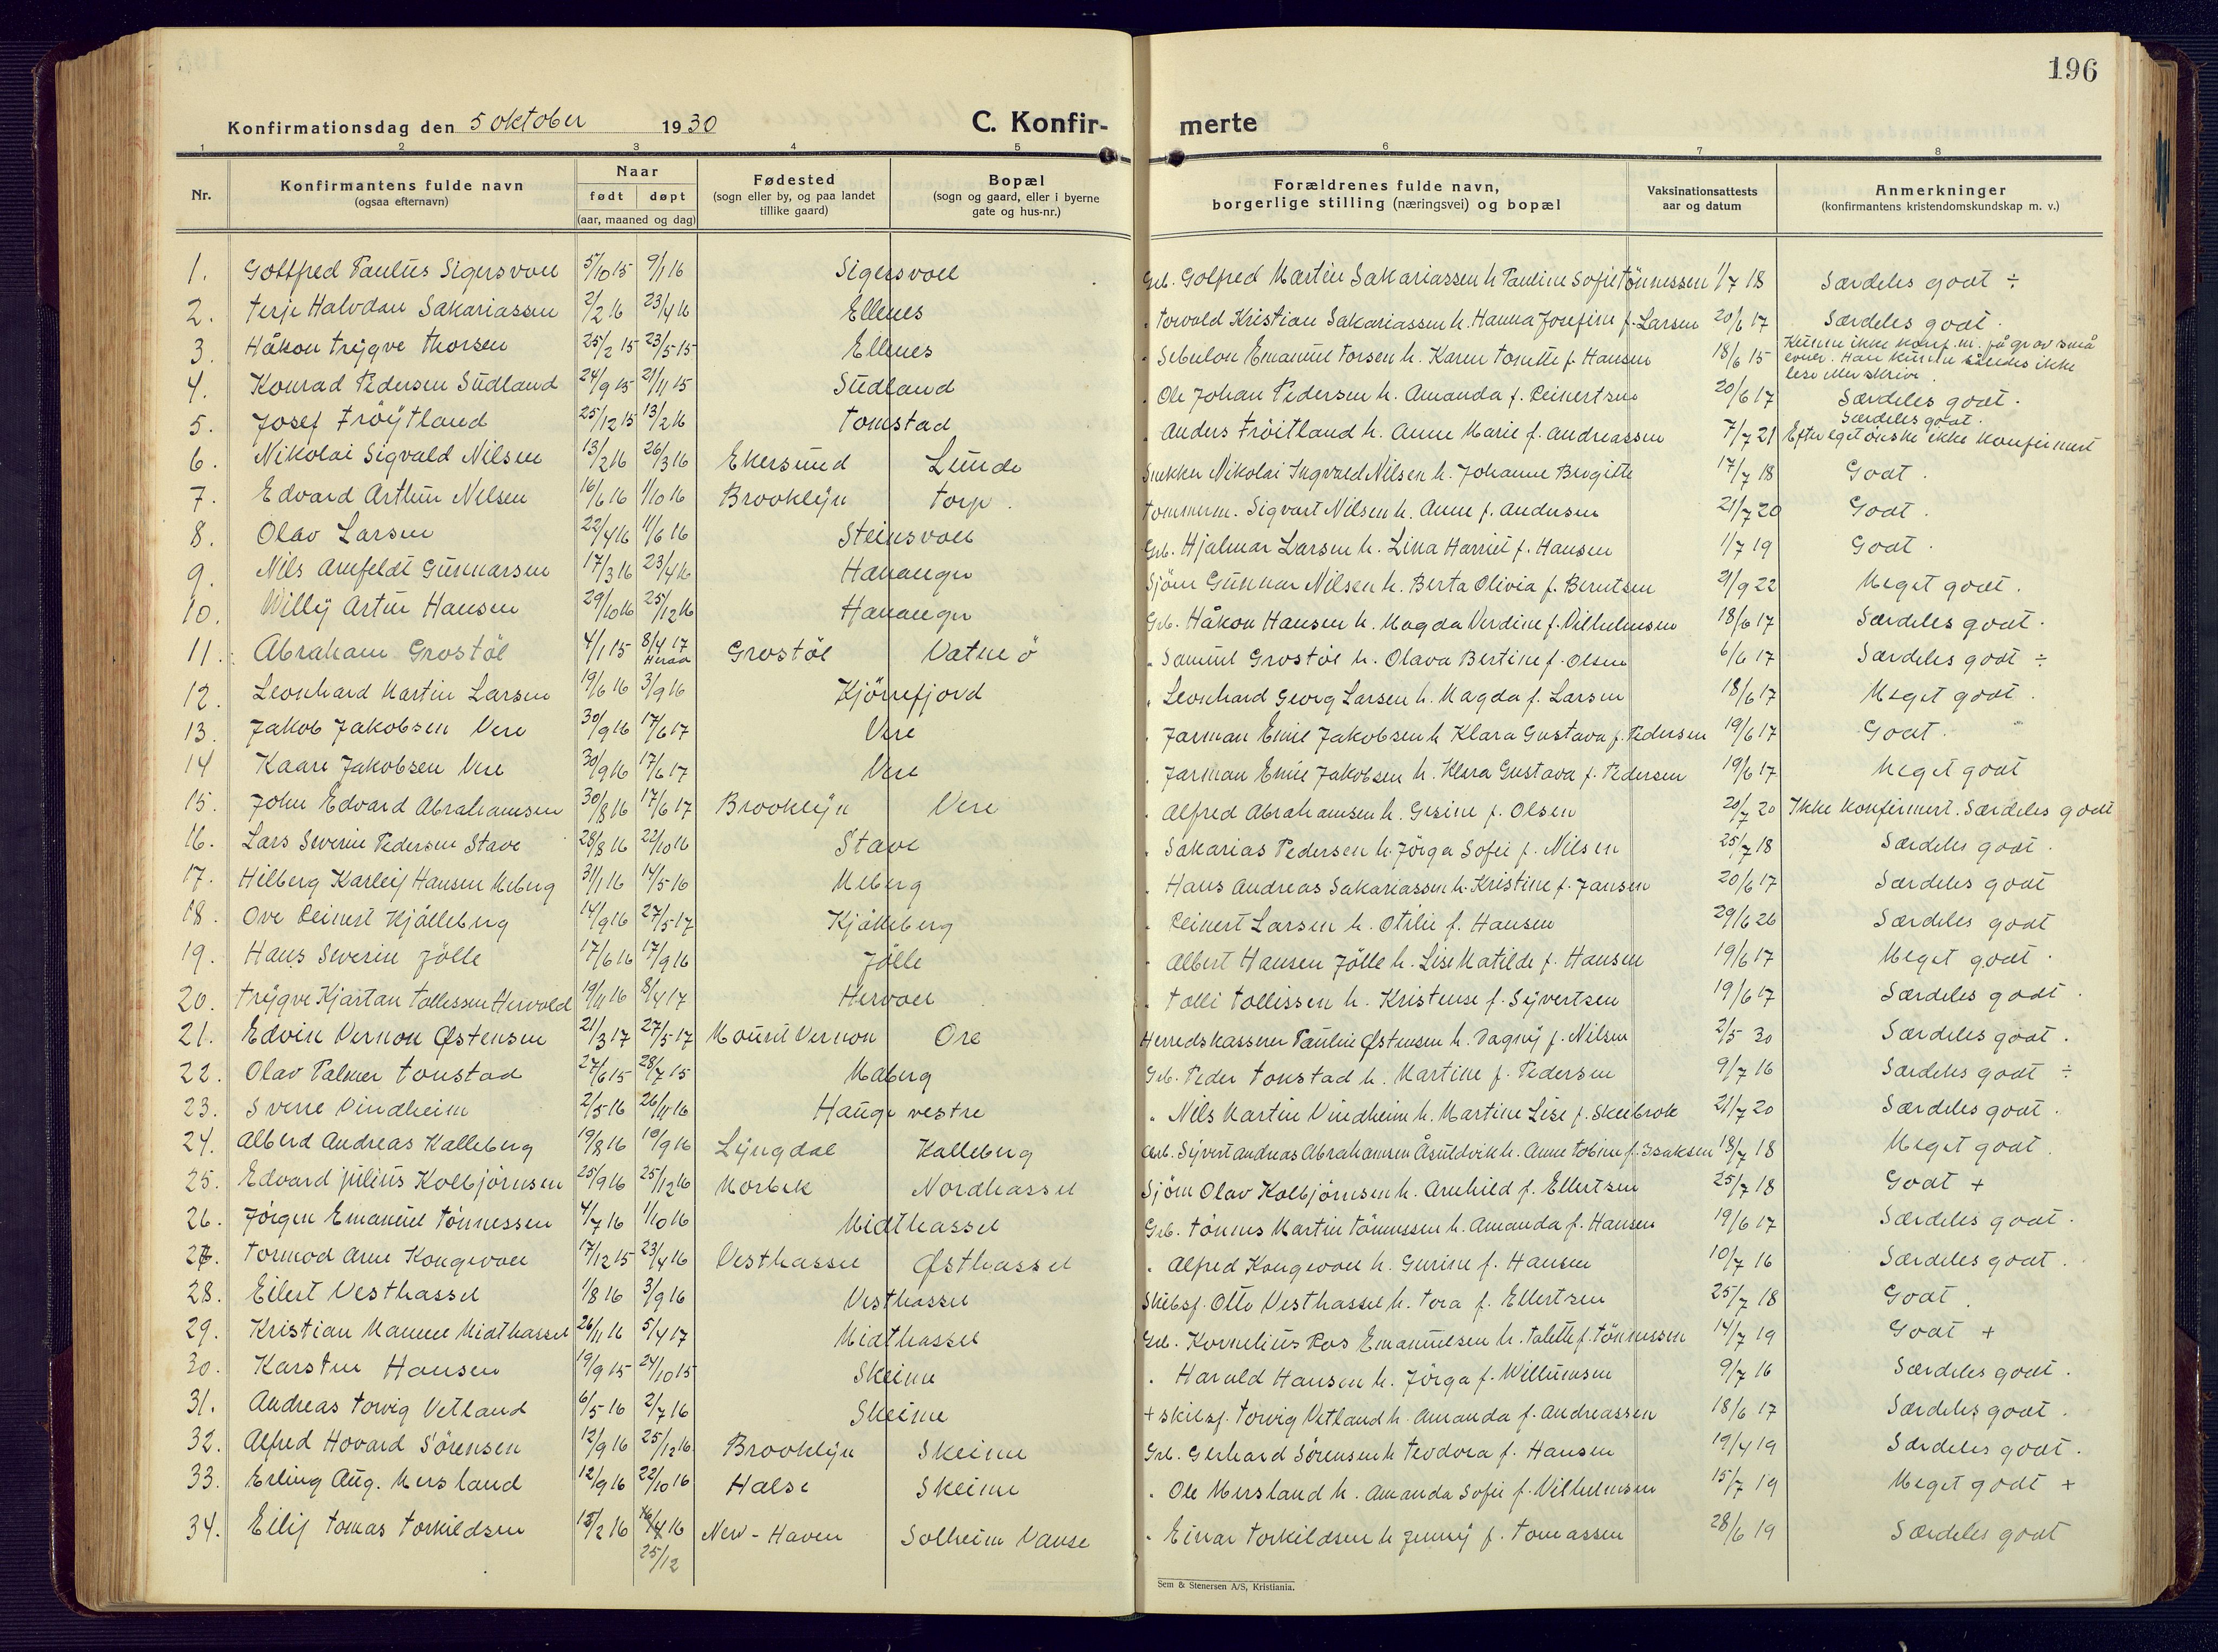 196
Konfirmationsdag den 5 oktober 1930
C. Konfir- merte
1 2 3 4 5 6 7 8
Nr. Konfirmantens fulde navn (ogsaa efternavn) Naar født døpt (aar, maaned og dag) Fødested (sogn eller by, og paa landet tillike gaard) Bopæl (sogn og gaard, eller i byerne gate og hus-nr.) Forældrenes fulde navn, borgerlige stilling (næringsvei) og bopæl Vaksinationsattests aar og datum Anmerkninger (konfirmantens kristendomskundskap m. v.)
1. Gottfred Paulus Sigersvoll 5/10 15 9/1 16 Sigersvoll Grb. Golfred Martin Sakariassen h Pauline Sofie Tönnessen 1/7 18 Særdeles godt ÷
2. Terje Halvdan Sakariassen 2/2 16 23/4 16 Ellenes " Torvald Kristian Sakariassen h. Hanna Josefine f. Larsen 20/6 17 Særdeles godt.
3. Håkon Trygve Thorsen 25/2 15 23/5 15 Ellenes " Sebulon Emanuel Torsen h. Karen Tonette f. Hansen 18/6 15 Kunne ikke konf. m. på grav små evner. Han kunne således ikke lese eller skrive.
4. Konrad Pedersen Sudland 24/9 15 21/11 15 Sudland " Ole Johan Pedersen h. Amanda f. Reinertsen 20/6 17 Særdeles godt.
5. Josef Fröytland 25/12 15 13/2 16 Tomstad " Anders Fröitland h. Anne Marie f. Andreassen 7/7 21 Særdeles godt. Efter eget ønske ikke konfirmert
6. Nikolai Sigvald Nilsen 13/2 16 26/3 16 Ekersund Lunde Snekker Nikolai Ingvald Nilsen h. Johanne Birgitte 17/7 18 Godt.
7. Edvard Arthur Nilsen 16/6 16 1/10 16 Brooklyn Torp. Tømmerm. Sigvart Nilsen h. Anne f. Andersen 21/7 20 Godt.
8. Olav Larsen 22/4 16 11/6 16 Steinsvoll Grb. Hjalmar Larsen h. Lina Harriet f. Hansen 1/7 19 Godt.
9. Nils Arnfeldt Gunnarsen 17/3 16 23/4 16 Hananger Sjöm Gunnar Nilsen h. Berta Olivia f. Berntsen 21/9 22 Meget godt.
10. Willy Artur Hansen 29/10 16 25/12 16 Hananger Grb. Håkon Hansen h. Magda Verdine f. Vilhelmsen 18/6 17 Særdeles godt.
11. Abraham Grostöl 4/1 15 8/4 17 Heraa Grostöl Vatne ö " Samuel Grostöl h. Olava Bertine f. Olsen 6/6 17 Særdeles godt ÷
12. Leonhard Martin Larsen 19/6 16 3/9 16 Kjörrefjord " Leonhard Georg Larsen h. Magda f. Larsen 18/6 17 Meget godt.
13. Jakob Jakobsen Vere 30/9 16 17/6 17 Vere " Jarman Emil Jakobsen h Klara Gustava f. Pedersen 19/6 17 Godt.
14 Kaare Jakobsen Vere 30/9 16 17/6 17 Vere " Jarman Emil Jakobsen h. Klara Gustava f. Pedersen 19/6 17 Meget godt
15. John Edvard Abrahamsen 30/8 16 17/6 17 Brooklyn Vere " Alfred Abrahamsen h. Gesine f. Olsen 20/7 20 Ikke konfirmert. Særdeles godt
16. Lars Severin Pedersen Stave 28/8 16 22/10 16 Stave " Sakarias Pedersen h. Jörga Sofie f. Nilsen 25/7 18 Særdeles godt.
17. Hilberg Karleif Hansen Meberg 31/1 16 14/5 16 Meberg " Hans Andreas Sakariassen h. Kristine f. Jansen 20/6 17 Særdeles godt
18. Ove Reinert Kjålleberg 14/9 16 27/5 17 Kjålleberg " Reinert Larsen h. Otilie f. Hansen 29/6 26 Særdeles godt
19. Hans Severin Jölle 17/6 16 17/9 16 Jölle " Albert Hansen Jölle h. Lise Matilde f. Hansen 19/6 17 Meget godt.
20. Trygve Kjartan Tollessen Hervold 19/11 16 8/4 17 Hervoll " Tolli Tollissen h. Kristense f. Syvertsen 19/6 17 Særdeles godt.
21. Edvin Vernon Østensen 21/3 17 27/5 17 Mount Vernon Ore Herredskasserer Pauline Østensen h. Dagny f. Nilsen 2/5 30 Særdeles godt.
22. Olav Palmer Tonstad 27/6 15 28/7 15 Maberg Grb. Peder Tonstad h. Martine f. Pedersen 9/7 16 Særdeles godt ÷
23. Sverre Vindheim 2/5 16 26/11 16 Hauge vestre " Nils Martin Vindheim h. Martine Lise f. Skeibrok 21/7 20 Særdeles godt.
24. Alberd Andreas Kalleberg 19/8 16 10/9 16 Lyngdal Kalleberg Arb. Syvert Andreas Abrahamsen Åsuldvik h. Anne Tobine f. Isaksen 18/7 18 Meget godt.
25. Edvard Julius Kolbjörnsen 25/9 16 25/12 16 Morbek Nordhassel Sjöm Olav Kolbjörnsen h. Arnhild f. Ellertsen 25/7 18 Godt +
26. Jörgen Emanuel Tönnessen 4/7 16 1/10 16 Midthassel Grb. Tönnes Martin Tönnessen h. Amanda f. Hansen 19/6 17 Særdeles godt.
27. Tormod Arne Kongevoll 17/12 15 23/4 16 Vesthassel Østhassel " Alfred Kongevoll h. Gurine f. Hansen 10/7 16 Særdeles godt.
28. Eilert Vesthassel 1/8 16 3/9 16 Vesthassel Skibsf. Otto Vesthassel h. Tora f. Ellertsen 25/7 18 Godt.
29. Kristian Manne Midthassel 26/11 16 5/4 17 Midthassel Grb. Kornelius Ros Emanuelsen h. Talette f. Tönnessen 14/7 19 Godt +
30. Karsten Hansen 19/9 15 24/10 15 Skeime " Harald Hansen h. Jörga f. Willumsen 9/7 16 Særdeles godt.
31. Andreas Torvig Vetland 6/5 16 2/7 16 Skeime + Skibsf. Torvig Vetland h. Amanda f. Andreassen 18/6 17 Særdeles godt.
32. Alfred Hovard Sörensen 12/9 16 25/12 16 Brooklyn Skeime Grb. Gerhard Sörensen h Teodora f. Hansen 19/4 19 Særdeles godt.
33. Erling Aug. Mersland 12/9 16 22/10 16 Halse Skeime " Ole Mersland h. Amanda Sofie f. Vilhelmsen 15/7 19 Meget godt +
34. Eilif Tomas Torkildsen 15/2 16 16/4 16 25/12 New-Haven Solheim Vanse " Einar Torkildsen h Jenny f. Tomassen 28/6 19 Særdeles godt
Sem & Stenersen A/S, Kristiania.